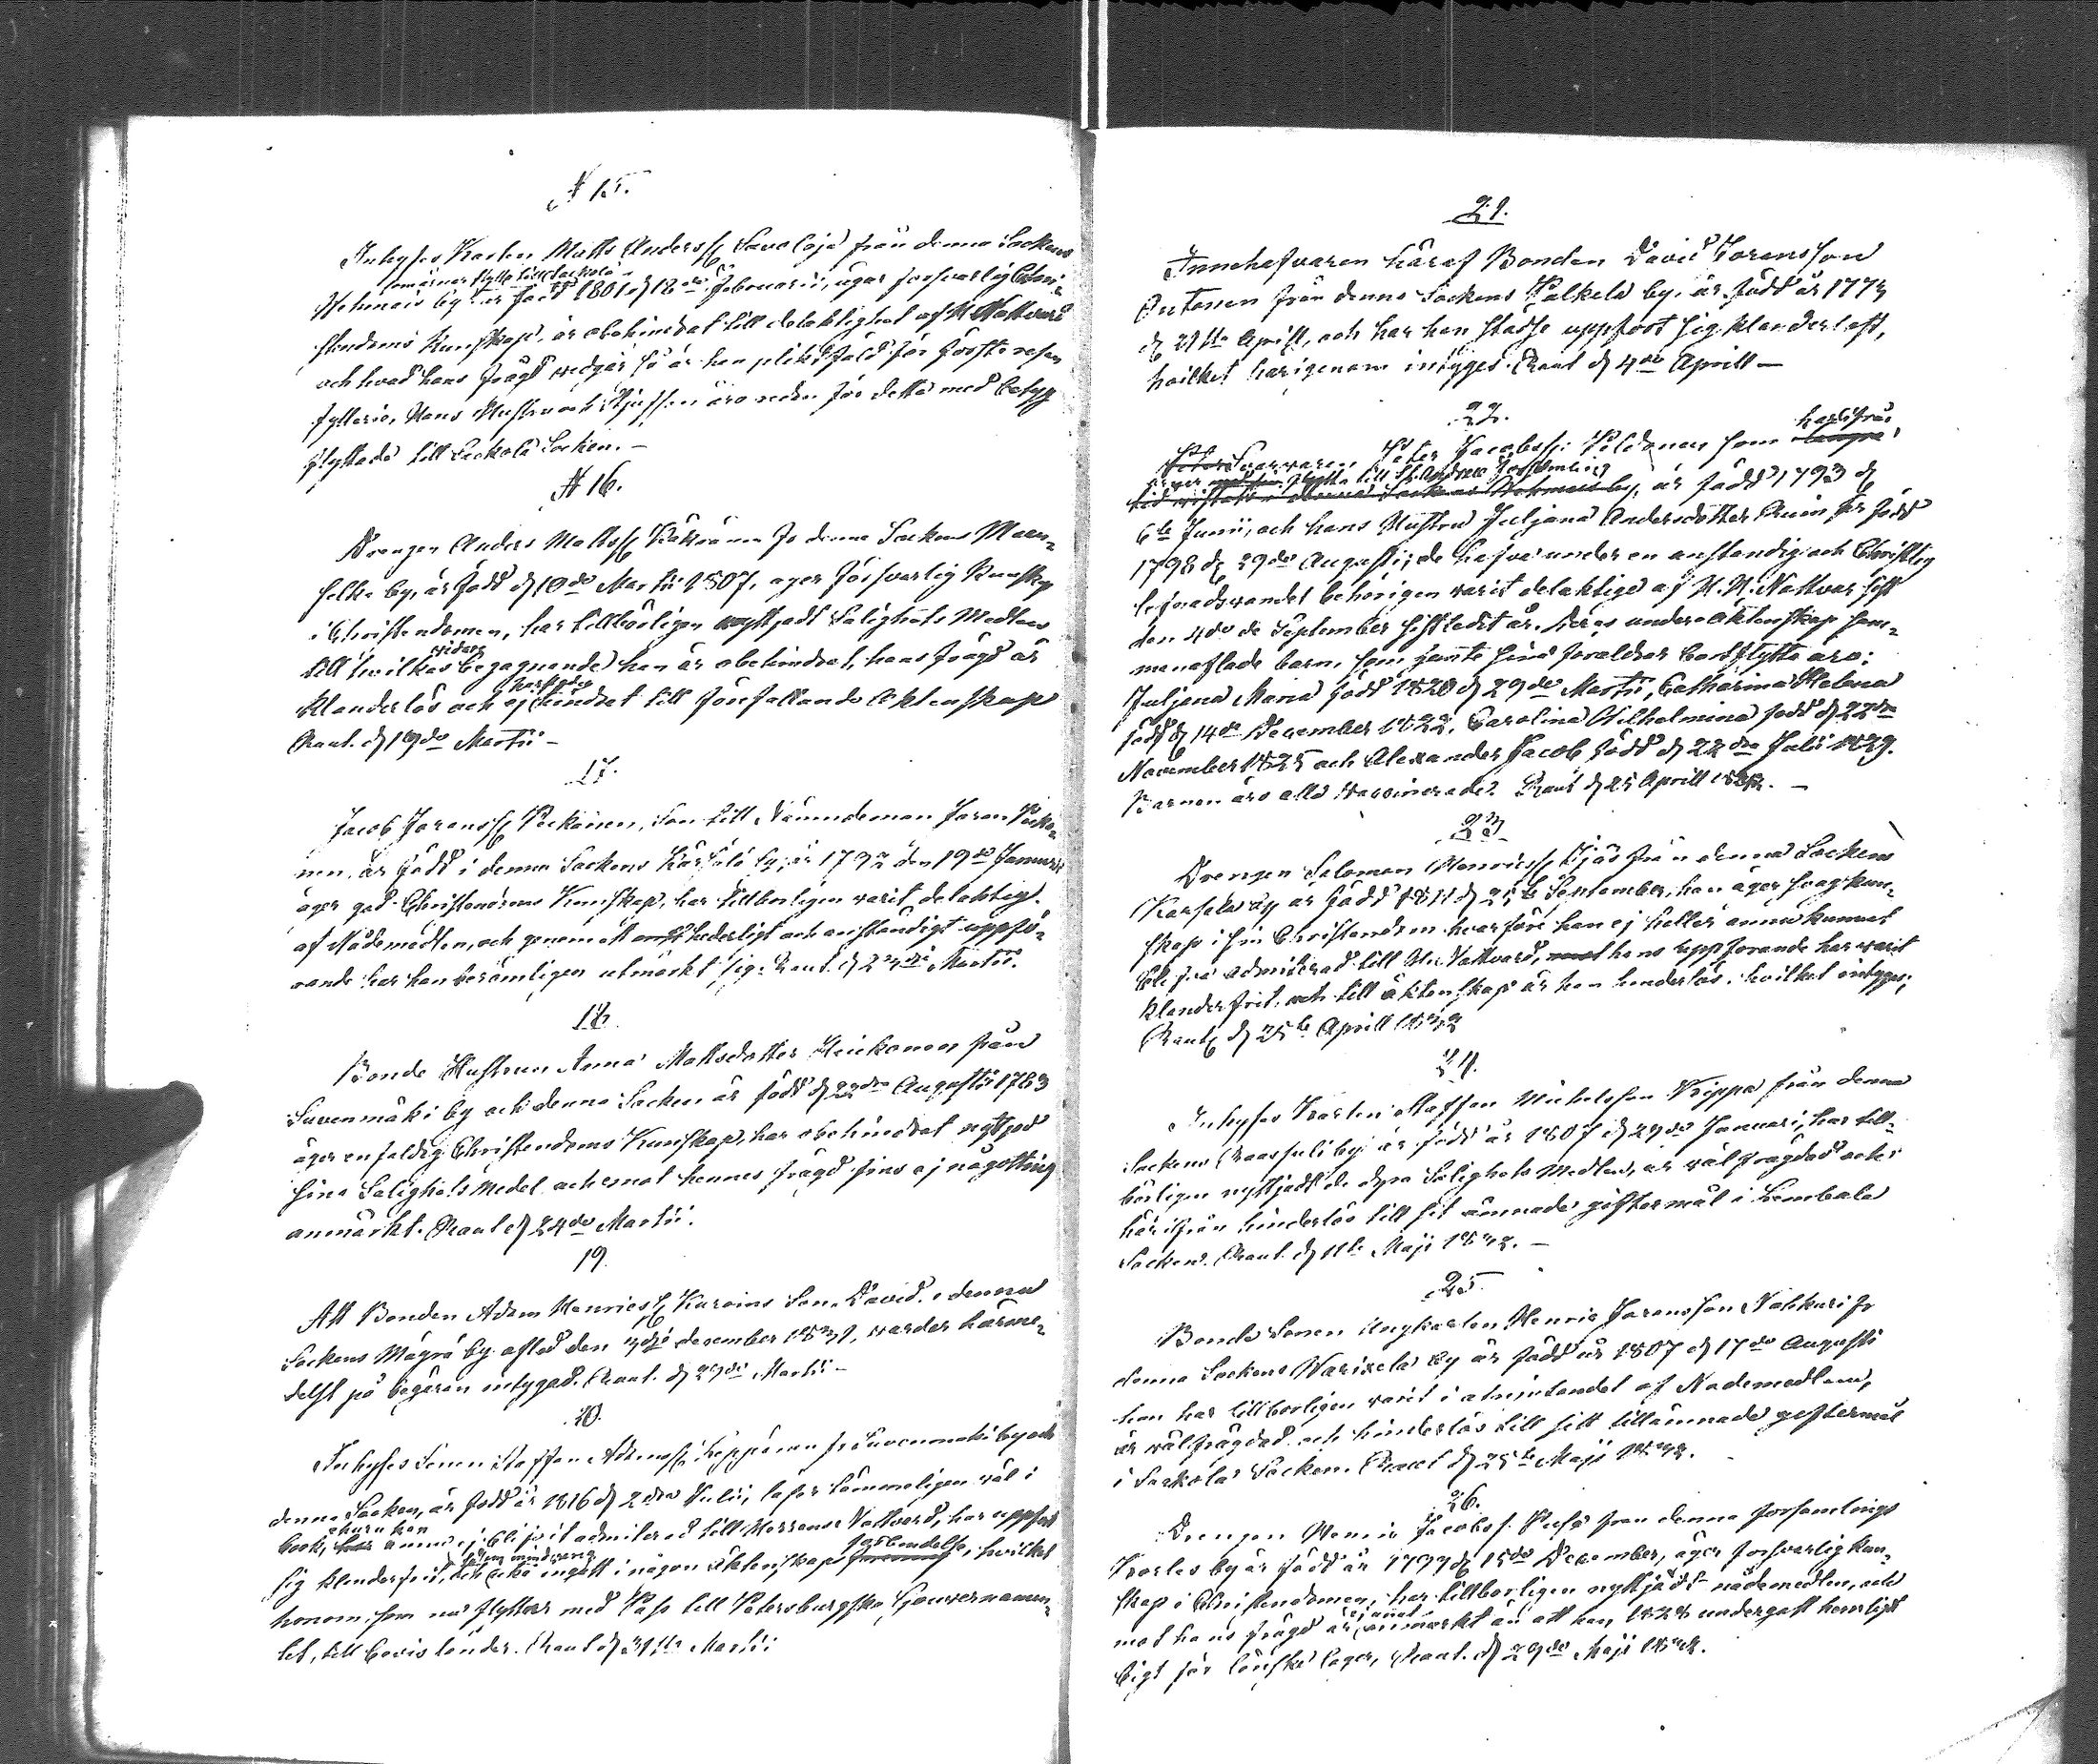 N 15.
Inhyses Karlen Matts Anderss: Savolaja från denna Sockens
som ärnar flytta till Sackola
by är född 1801 d 18de Februarii, äger försvarlig Chri-
stendoms Kunskap, är obehindrat till delaktighet af H. Nattvard
och hvad hans frägd vedgår så är han pliktfäld för första resan
fylleri, Hans Hustru och äro redan för detta med betyg
flyttade till Sackola Socken. –
N 16.
Drengen Anders Matts: fr denna Sockens
by, är född d 10de Martii 1807, äger försvarlig Kunskap
i Christendomen, har tillbörligen nyttjadt Salighets Medlen
vidare
till hvilkas begagnande han är obehindrat, hans frägd är
klanderlös och ej hindret till förefallande Äktenskap
Raut. d 19de Martii –
17.
Jacob Joranss: Pockonen, Son till Nämndeman Joran Pocko-
nen, är född i denna Sockens by, år 1792 den 19de Januarii
äger god Christendoms Kunskap, har tillbörligen varit delaktig
af Nådemedlen, och genom ett hederligt och anständigt uppfö-
rande har han berömligen utmärkt sig. Raut. d 24de Martii.
18.
Bonde Hustrun Anna Mattsdotter Heickonen från
Suvenmäki by och denna Socken är född d 22dra Augusti 1783
äger enfaldig Christendoms Kunskap, har obehindrat nyttjad
sina Salighets Medel och emot hennes frägd fins ej någotting
anmärkt. Raut d 24de Martii.
19.
Att Bonden Adam Henricss: Karoins Son, David. i denna
Sockens Mägrä by aflad den 3dje december 1831, warder härme-
delst på begäran intygad. Raut. d 27de Martii –
20.
Inhyses Sonen Staffan Adamss: Keppänen fr Suvenmäki by och
denna Socken, är född år 1816 d 2dra Julii, läser sämmeligen väl i
churu han
book, ännu ej blifvit admiterad till Herrans Nattvard, har uppfört
förbindelse
sig klanderfrit, och icke ingått i någon äktenskaps , hvilket
honom, som nu flyttar med Pass till Petersburgska Gouvernemen-
tet, till bevis länder. Raut d 31sta Martii.
21.
Innehafvaren häraf Bonden David Joransson
från denna Sockens Palkela by, är född år 1773
d 21sta April, och har han städse uppfört sig klanderlöst,
hvilket härigenom intygges. Raut d 4de Aprill –
22.
härifrån
Peter Jacobss: Pildonen som
flytta till St. Andreæ Församling
är född 1793 d
6te Junii, och hans Hustru Juljana Andersdotter är född
1798 d 29de Augusti; de hafva under en anständig och Christlig
lefnadsvandel behörigen varit delaktige af H. H. Nattvar sist
den 4de September sistledit år. deras under Äktenskap sam-
manaflade barn, som jemte sina foraldrar bortflytta äro:
Juljana Maria född 1820 d 29de Martii, Catharina Helena
född d 14de December 1822, Carolina Wilhelmina född d 22dra
November 1825 och Alexander Jacob född d 22dra Julii 1829.
Barnen äro alla vaccinerade. Raut d 25 Aprill 1832. –
23
Drengen Salomon Henricss: från denna Sockens
by är född 1811 d 25te September, han äger svag kun-
skap i sin Christendom hvarföre han ej heller ännu kunnat
blifva admiterad till H. Nattvard, hans uppförande har varit
klanderfrit, och till äktenskap är han hinderlös. hvilket intygas;
Raut d 25te Aprill 1832
24.
Inhyses Karlen Staffan Michelsson Krippa från denna
Sockens by är född år 1807 d 29de Januari, har till-
börligen nyttjadt de dyra Salighets Medlen, är välfrägdad och
härifrån hinderlös till sit ämnade giftermål i Lembala
Socken. Raut. d 11te Maji 1832. –
25
Bonde Sonen Ungkarlen Henric Joransson Nakkari fr
denna Sockens Warixela by är född år 1807 d 17de Augusti
han har tillbörligen varit i åtnjutandet af Nademedlen,
är välfrägdad och hinderlös till sitt tillämnade giftermål
i Sackola Socken. Raut d 25te Maji 1832.
26.
Drengen Henric Jacobss: Pusa från denna Forsamlings
by är född år 1799 d 15de December, äger försvarlig kun-
skap i Christendomen, har tillbörligen nyttjadt nådemedlen, och
ej annat
mot hans frägd är anmärkt än att han 1828 undergått
för lönska läger. Raut. d 29de Maji 1832.